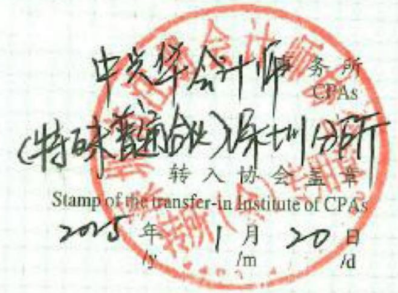 中兴华会计师事务所
CPAs
(特殊普通合伙)深圳分所
转入协会盖章
Stamp of the transfer-in Institute of CPAs
2025 年 1 月 20 日
/y /m /d